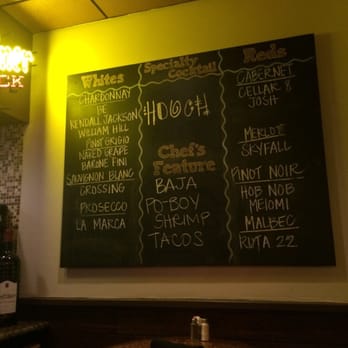 Whites
CHARDONNAY
KENDALL JACKSON
WILLIAM HILL
PINOT GRIGIO
NAKED GRAPE
BARONE FINI
SAUVIGNON BLANC
CROSSING
PROSECCO
LA MARCA
Specialty
Cocktail
HOOCH
Chef's
Feature
BAJA
PO-BOY
SHRIMP
TACOS
Reds
CABERNET
CELLAR 8
JOSH
MERLOT
SKYFALL
PINOT NOIR
HOB NOB
MEIOMI
MALBEC
RUTA 22